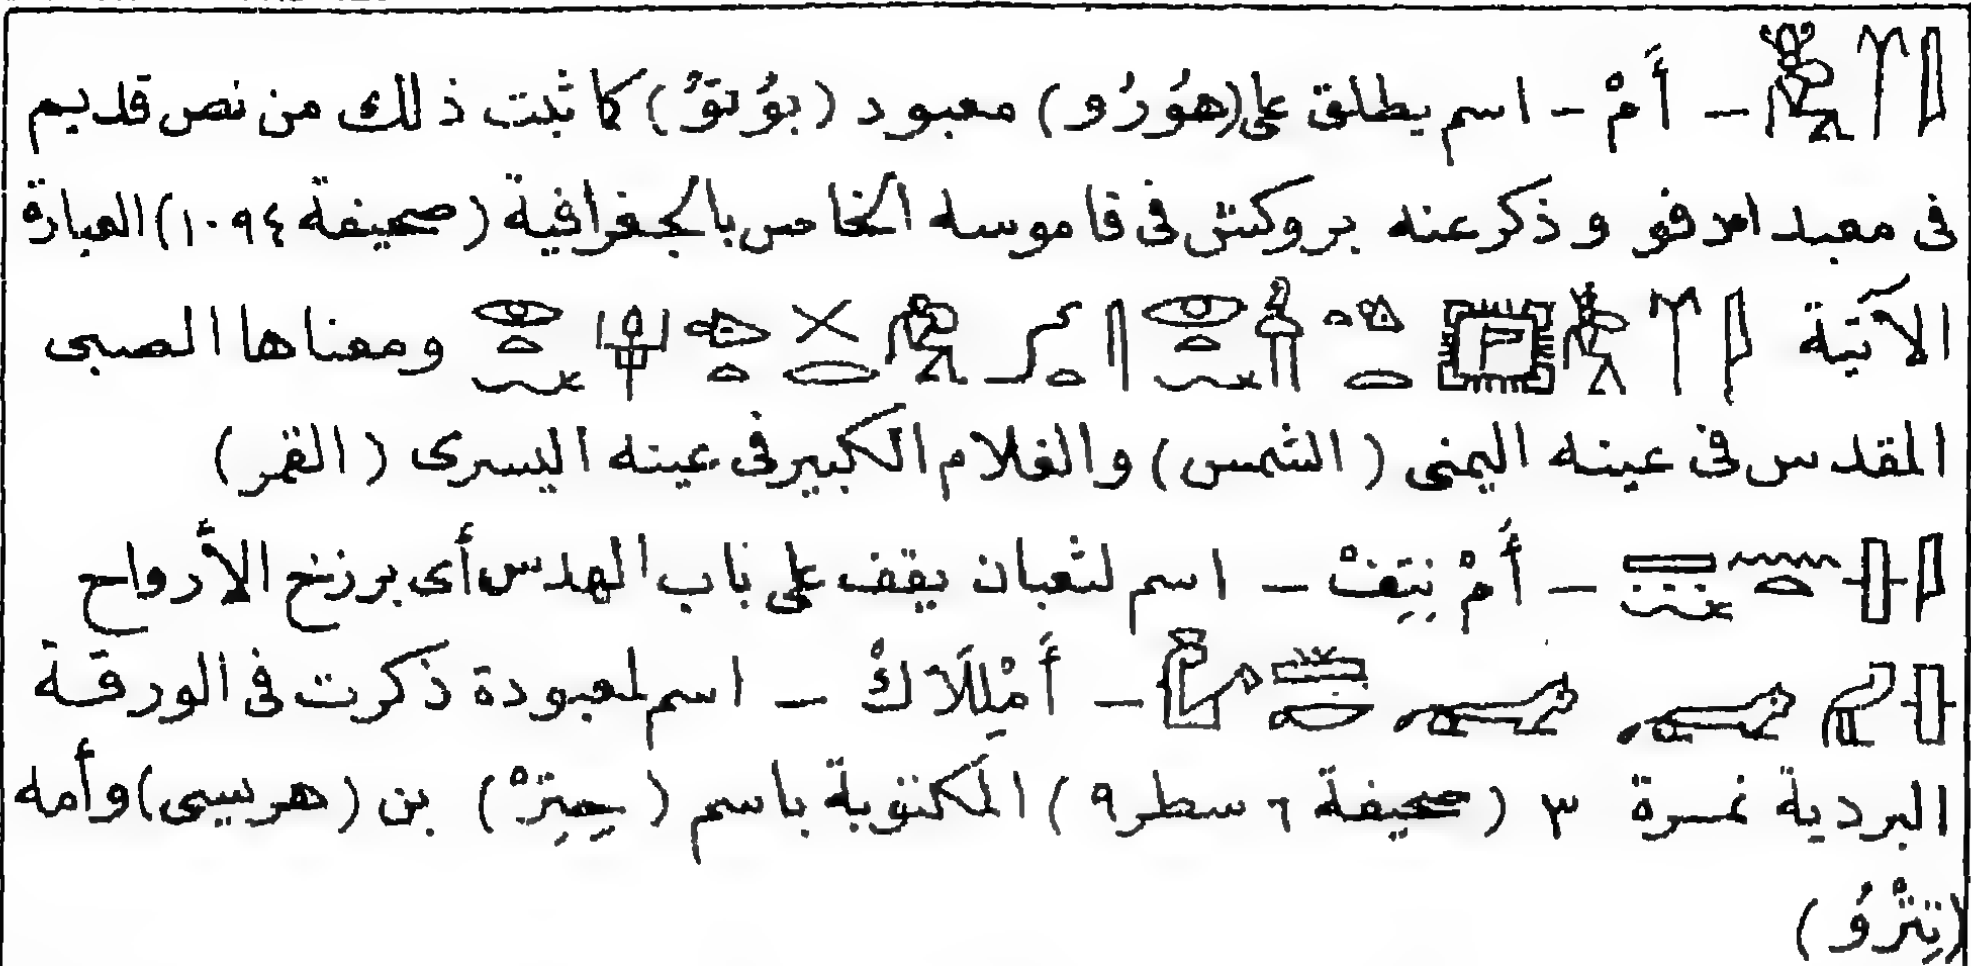 – أَمْ – اسم يطلق على (هوُرُو) معبود (بوُتوَّ) كما ثبت ذلك من نص قديم
فى معبد ادفو وذكر عنه بروكش فى قاموسه الخاص بالجغرافية (صحيفة ١٠٩٤) العبارة
الآتية ومعناها الصبى
المقدس فى عينه اليمنى (الشمس) والغلام الكبير فى عينه اليسرى (القمر)
– أَمْ نِتِفْ – اسم لثعبان يقف على باب الهدس أى برزخ الأرواح
– أَمْلِلَاكْ – اسم لمعبودة ذكرت فى الورقة
البردية نمرة ٣ (صحيفة ٦ سطر ٩) المكتوبة باسم (حِتِرْ) بن (هرسيسى) وأمه
(تِتْرُو)